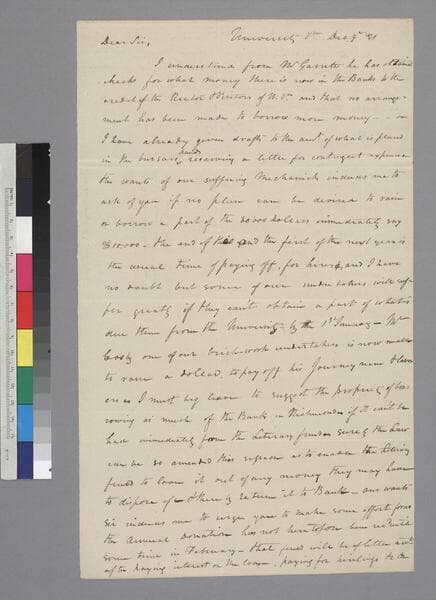 University Va Dec 9 21
Dear Sir,
I understand from Mr Garrett he has obtained
checks for what money there is now in the Banks to the
credit of the Rector & Visitors of U. Va and that no arrange-
ment has been made to borrow more money —
I have already given drafts to the amt of what is placed
in the bursars hands, reserving a little for contingent expenses
the wants of our suffering Mechanicks induces me to
ask of you if no plan can be devised to raise
or borrow a part of the dollars immediately say
$10.000 — the end of this and the first of the next year is
the usual time of paying off for hires, and I have
no doubt but some of our undertakers will suf-
fer greatly if they can't obtain a part of what is
due them from the University by the 1st January — Mr
one of our brickwork undertakers is now unable
to raise a dollar, to pay off his Journeymen &
as I must beg leave to suggest the propriety of bor-
rowing as much of the Banks in Richmond if it can't be
had immediately from the Literary fund surely the Law
can be so amended this session as to enable the Literary
fund to loan it out of any money they may have
to dispose of & thereby return it to Bank — our wants
Sir induces me to urge you to make some effort for
the annual donation has not heretofore been
some time in February — that fund will be of little
after paying interest on the loan, paying for to be